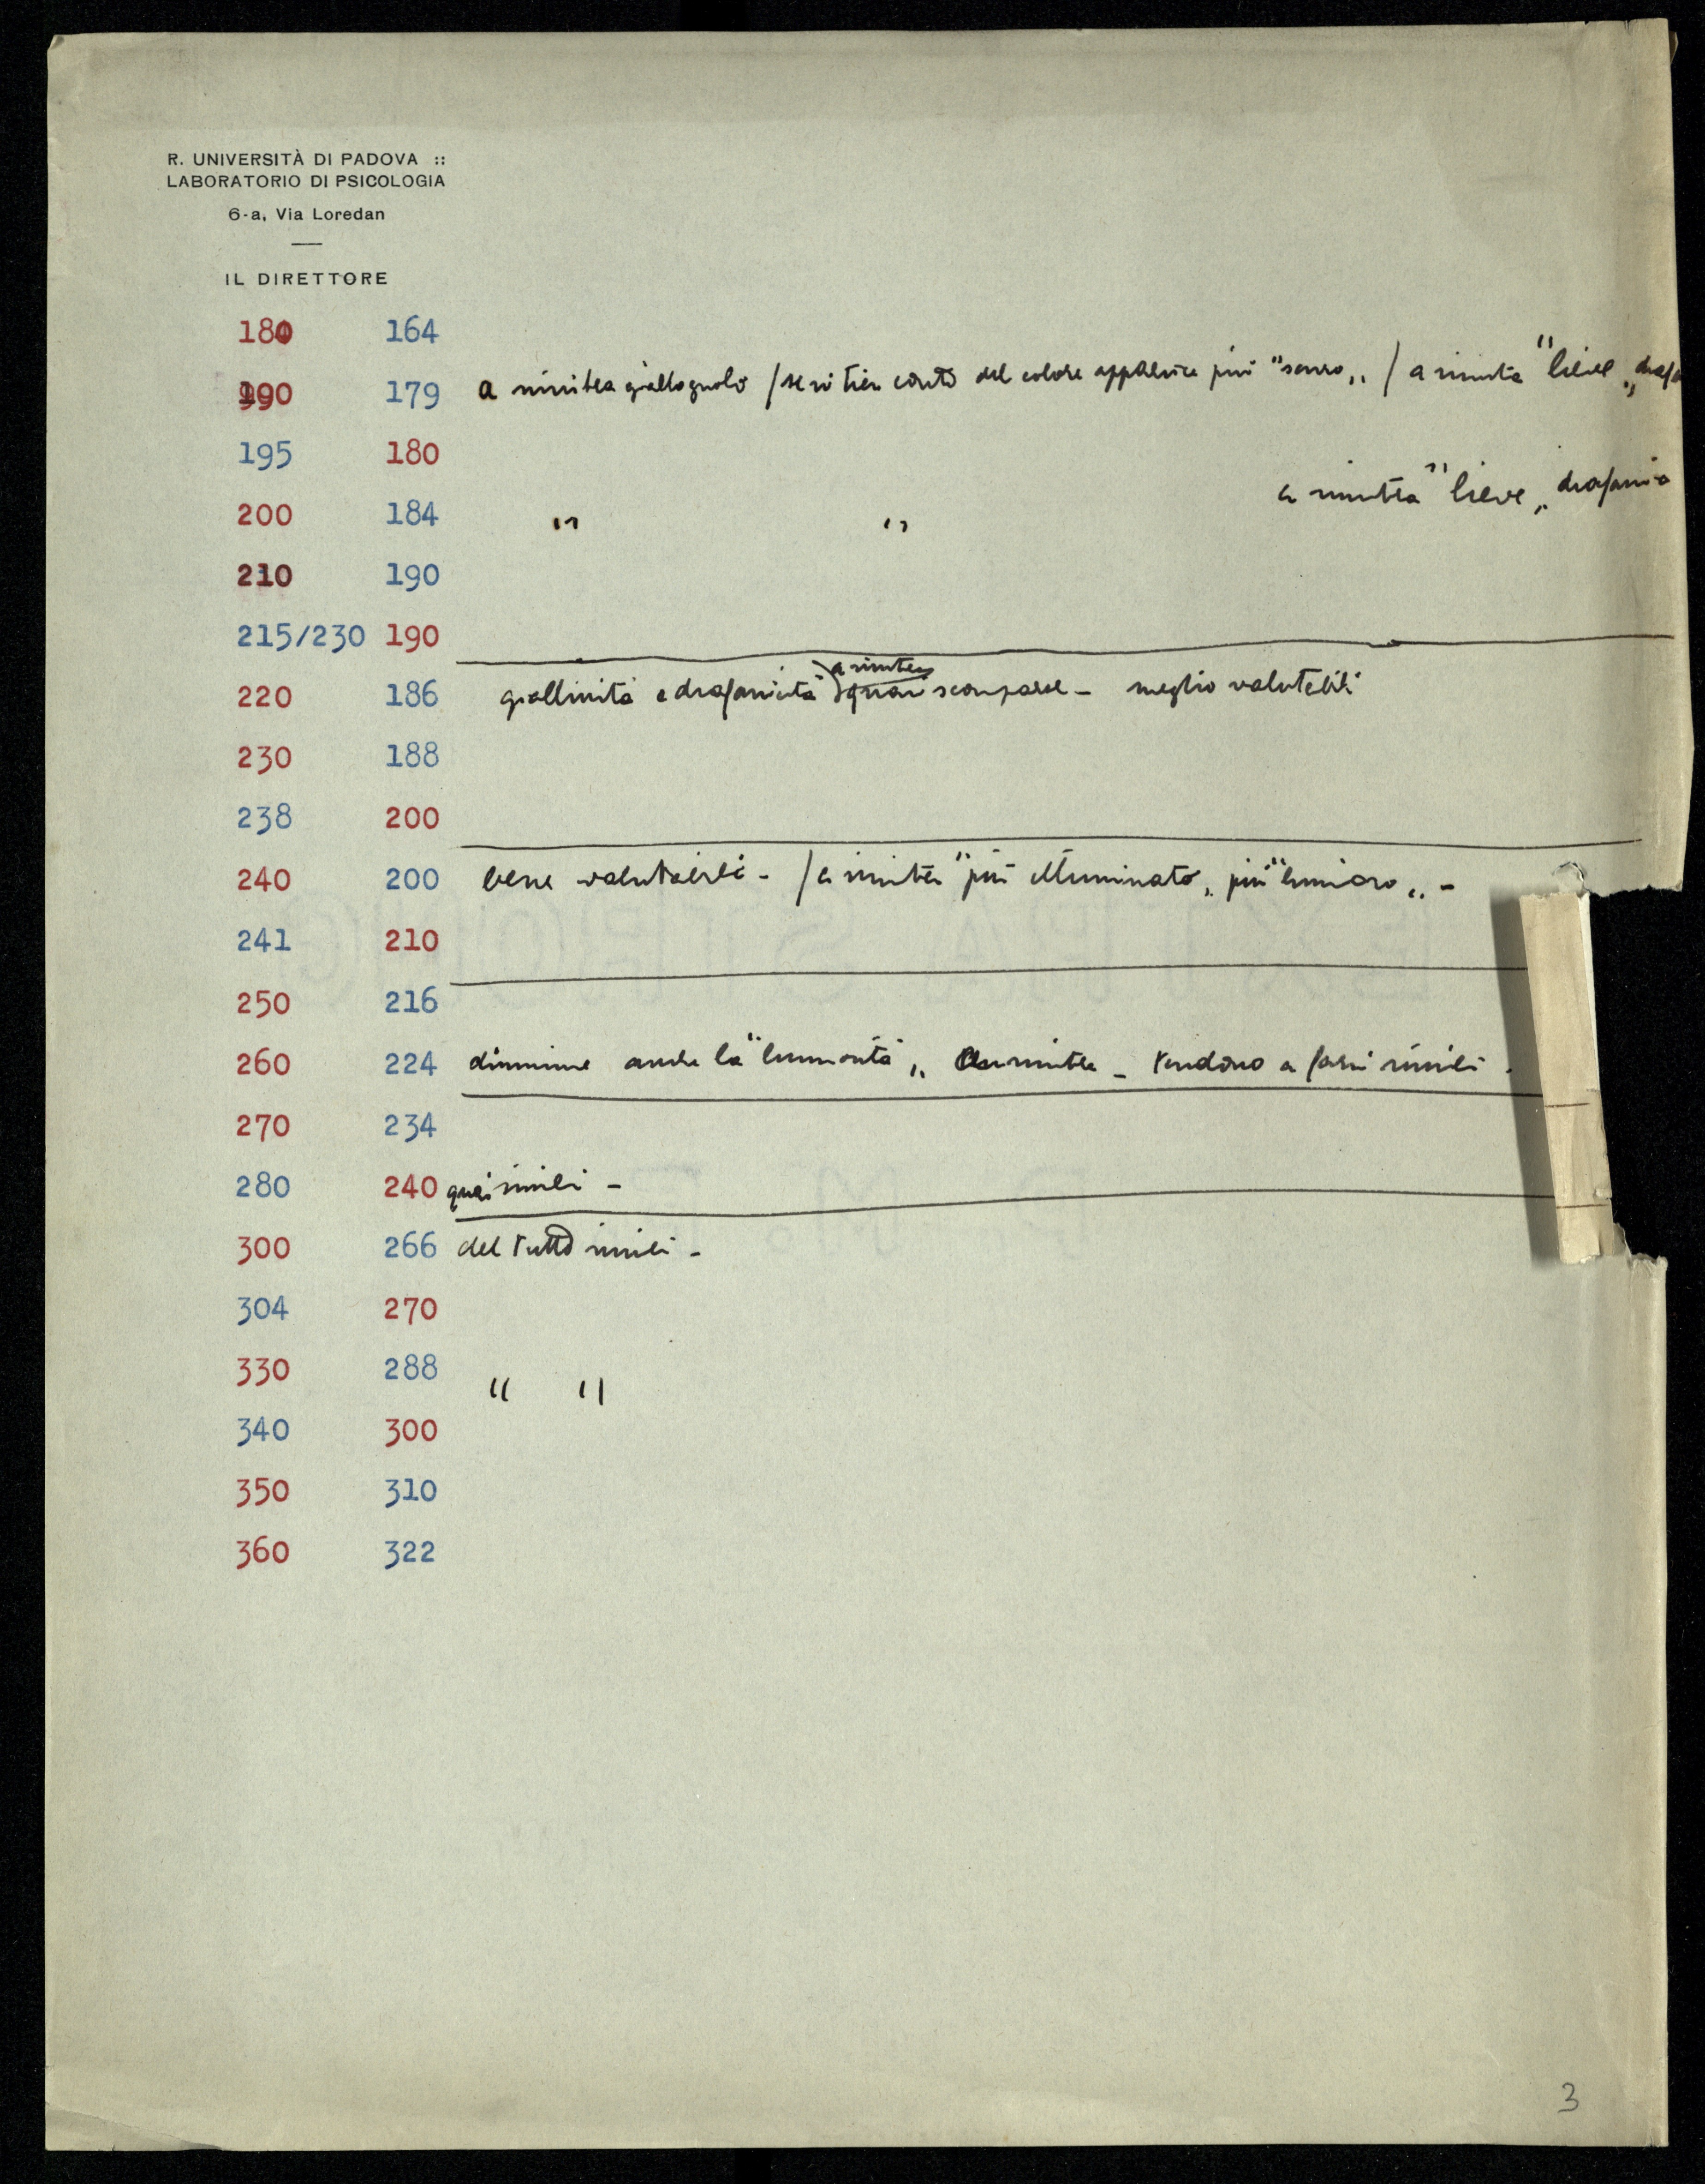 R. UNIVERSITÀ DI PADOVA ::
LABORATORIO DI PSICOLOGIA
6-a, Via Loredan
IL DIRETTORE
180 164
190 179 a sinistra giallognolo / se si tien conto del colore apparisce più "scuro„ / a sinistra "lieve„
195 180
a sinistra "lieve„ diafania
200 184 " "
210 190
215/230 190
a sinistra
220 186 giallinità e diafanicità quasi scomparse - meglio valutabili
230 188
238 200
240 200 bene valutabili - / a sinistra "più illuminato„ più "luminoso„ -
241 210
250 216
260 224 diminuisce anche la "luminosità„ a sinistra - tendono a farsi simili .
270 234
280 240 quasi simili -
300 266 del tutto simili -
304 270
330 288 " "
340 300
350 310
360 322
3